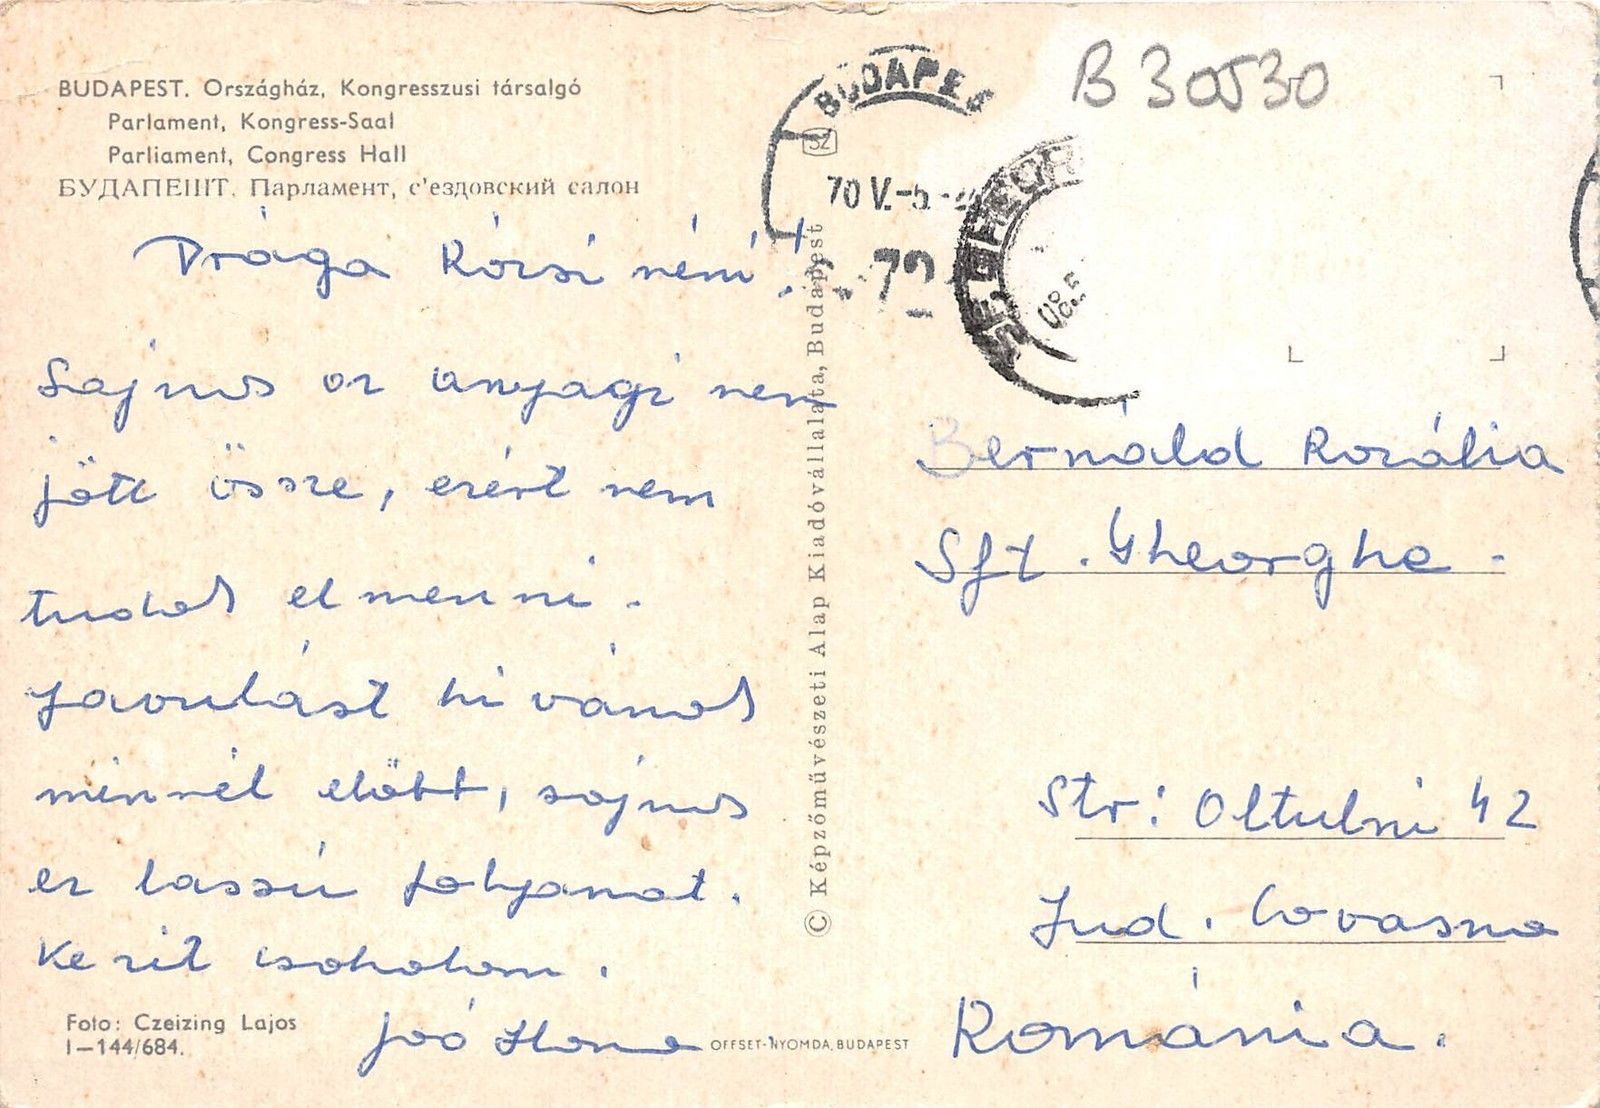 BUDAPEST. Országház, Kongresszusi társalgó
Parlament, Kongress-Saal
Parliament, Congress Hall
БУДАПЕШТ. Парламент, с'ездовский салон
Drága Rózsi néni!
Sajnos az anyagi nem
jött össze, ezért nem
tudok elmenni.
Javulást kívánok
minnél előbb, sajnos
ez lassú folyamat.
Kezit csokolom.
Joó Ilona
Foto: Czeizing Lajos
I-144/684.
OFFSET-NYOMDA, BUDAPEST
© Képzőművészeti Alap Kiadóvállalata, Budapest
SZ
BUDAPES
70 V.-5.
72
B 30530
Bernáld Rozália
Sft. Gheorghe.
Str: Oltului 42
Jud. Covasna
Románia.